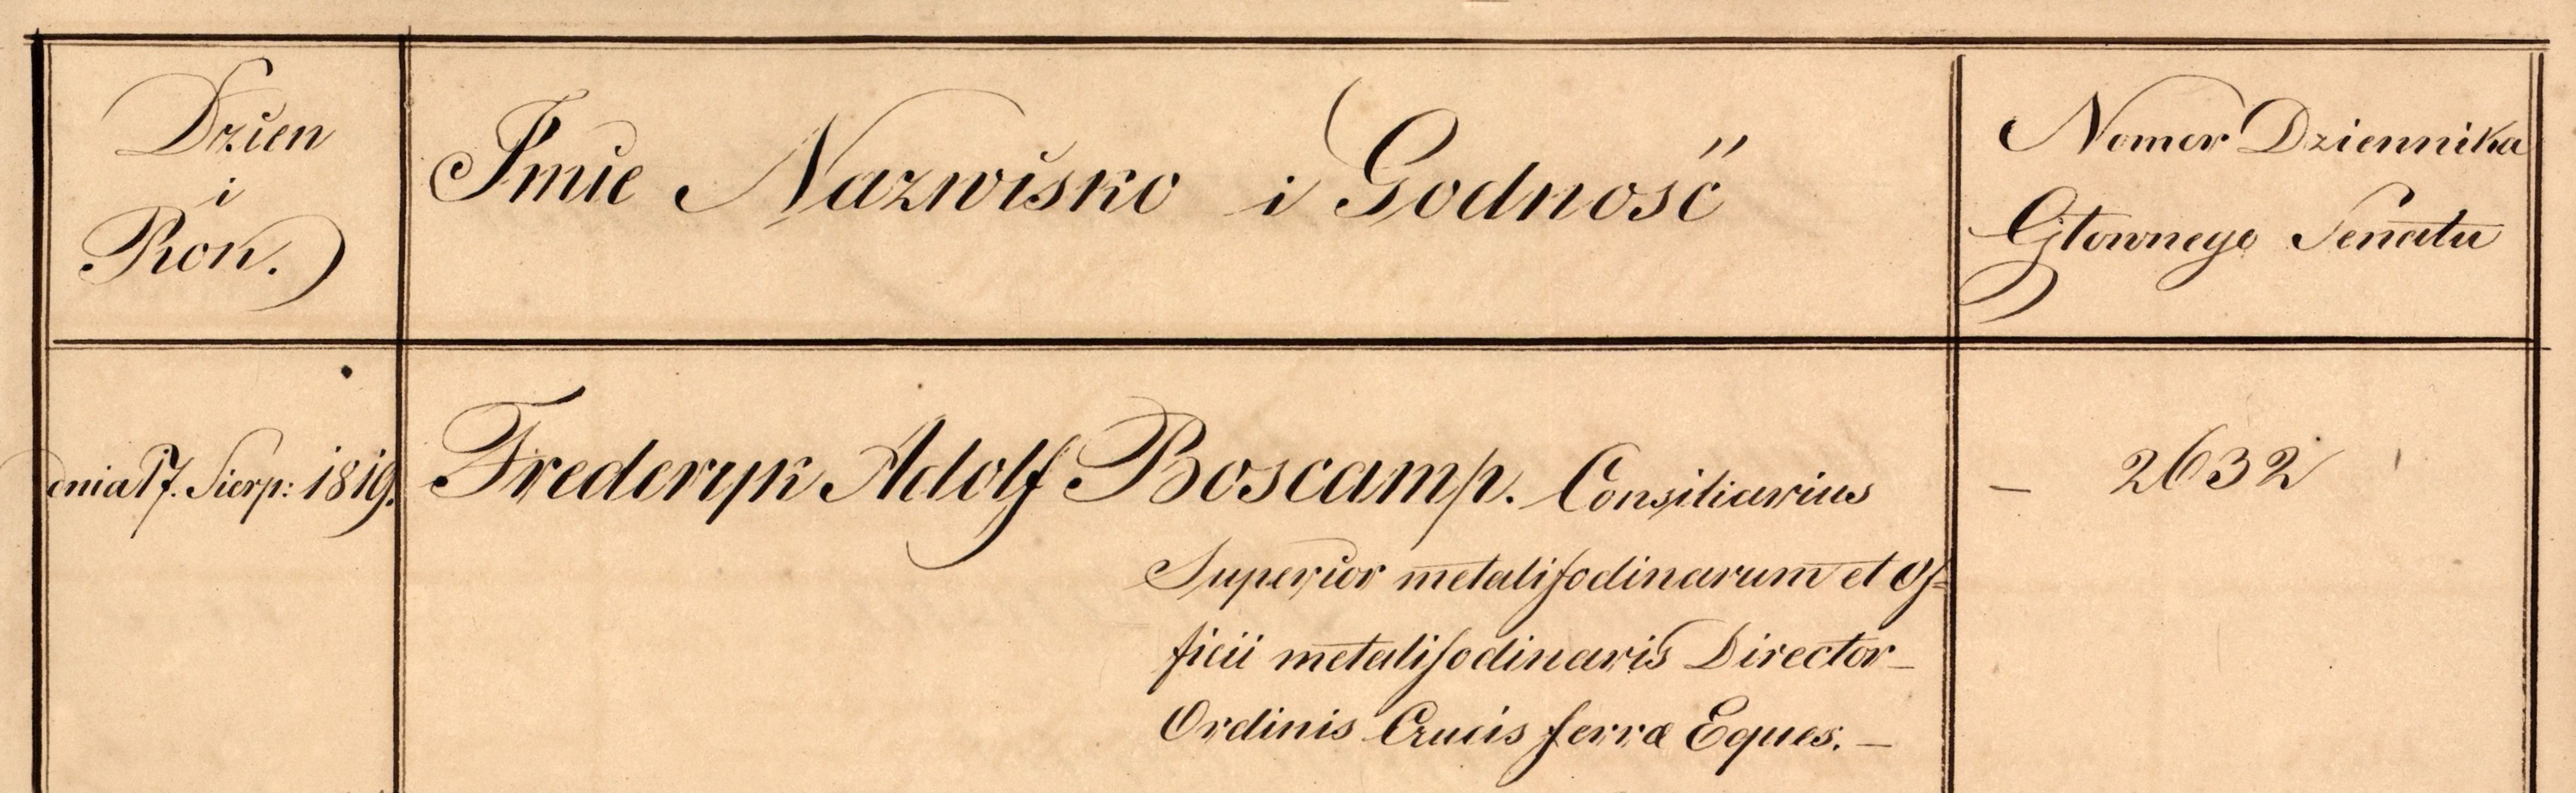 Dzien
i
Rok.
Imie Nazwisko i Godność
Nomer Dziennika
Głownego Senatu
dnia 17. Sierp: 1819.
Frederyk Adolf Boscamp. Consiliarius
— 2632
Superior metalifodinarum et of=
ficii metalifodinaris Director—
Ordinis Crucis ferræ Eques. —